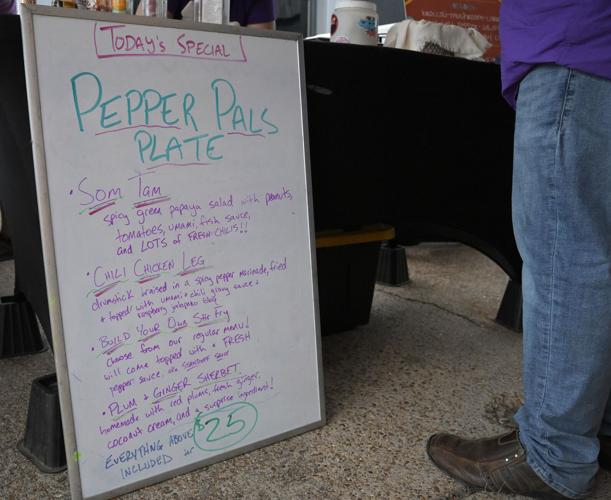 TODAY'S SPECIAL
PEPPER PALS
PLATE
• SOM TAM
spicy green papaya salad with peanuts,
tomatoes, umami, fish sauce,
and LOTS of FRESH CHILIS!!
• CHILI CHICKEN LEG
drumstick braised in a spicy pepper marinade, fried
+ topped with umami + chili gravy sauce +
raspberry jalapeño
• BUILD YOUR OWN STIR FRY
choose from our regular menu!
will come topped with a FRESH
pepper sauce,
• PLUM + GINGER SHERBET
homemade with red plums, fresh ginger,
coconut cream, and a surprise ingredient!
EVERYTHING ABOVE $25
INCLUDED